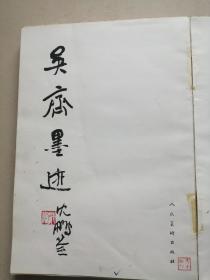 吴齐墨迹
沈鹏益
人民美术出版社